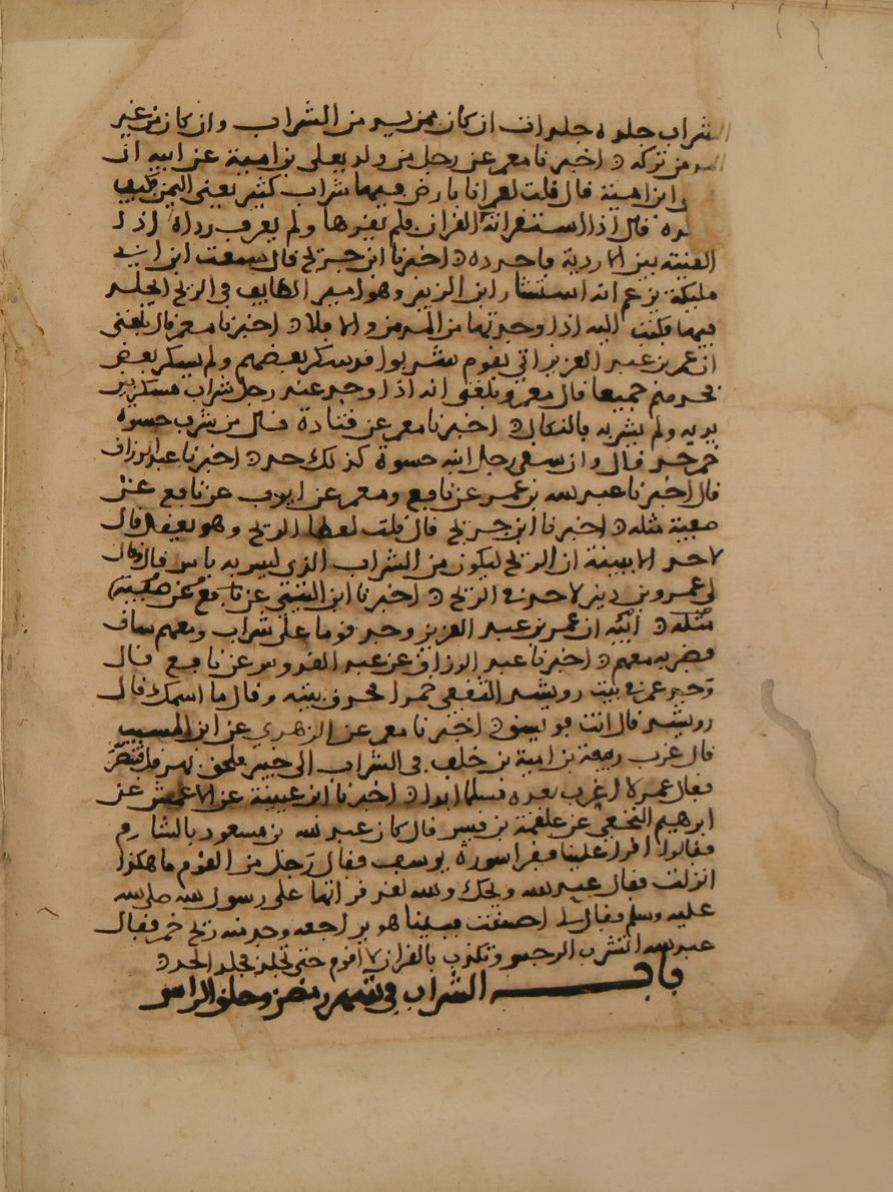 الشراب جلوه جلدات ان كان ممن يدمن الشراب وان كان من غير
من تركه اخبرنا معمر عن رجل من ولد يعلى بن امية عن ابيه ان
ابن امية قال قلت لعمر انا بارض فيها شراب كثير يعني اليمن فكيف
ده قال اذا استقرانه القران فلم يقرها ولم يعرف رداه اذا
القيته بين الاردية فاحدده اخبرنا ابن جريج قال سمعت ابن ابي
مليكة يزعم انه استشار ابن الزبير وهو امير الطايف في الريح اجلد
فيها فكتب اليه اذا وجدتها من المدمن والا فلا اخبرنا معمر قال بلغني
ان عمر بن عبد العزيز اتي بقوم شربوا قد سكر بعضهم ولم يسكر بعض
فحدهم جميعا قال معمر وبلغني انه اذا وجد عند رجل شراب مسكر بين
يديه ولم يشربه بالنكال اخبرنا معمر عن قتادة قال من شرب حسوة
خمر حد قال وان سقى رجل ابنه حسوة كذلك حد اخبرنا عبد الرزاق
قال اخبرنا عبد الله بن عمر عن نافع ومعمر عن ايوب عن نافع عن
صفية مثله اخبرنا ابن جريج قال قلت لعطا الريح وهو يعقل قال
لا حد الا ببينة ان الريح ليكون من الشراب الذي ليس به باس قال وقال
لي عمرو بن دينر لا حد في الريح اخبرنا ابن التيمي عن نافع عن صفية
مثله ان عمر بن عبد العزيز وجد قوما على شراب ومعهم ساق
فضربه معهم اخبرنا عبد الرزاق عن عبد القدوس عن نافع قال
وجد عمر في بيت رويشد الثقفي خمرا فحرق بيته وقال ما اسمك قال
رويشد قال انت فويسق اخبرنا معمر عن الزهري عن ابن المسيب
قال غرب ربيعة بن امية بن خلف في الشراب الى خيبر فلحق بهرقل فتنصر
فقال عمر لا اغرب بعده مسلما ابدا اخبرنا ابن عيينة عن الاعمش عن
ابرهيم النخعي عن علقمة بن قيس قال كان عبد الله بن مسعود بالشام
فقالوا اقرا علينا فقرا سورة يوسف فقال رجل من القوم ما هكذا
انزلت فقال عبد الله ويحك والله لقد قراتها على رسول الله صلى الله
عليه وسلم فقال لي احسنت فبينا هو يراجعه وجد منه ريح خمر فقال
عبد الله اتشرب الرجس وتكذب بالقران لا اقوم حتى تجلد فجلد الحد
باب الشراب في شهر رمضن وحلق الراس